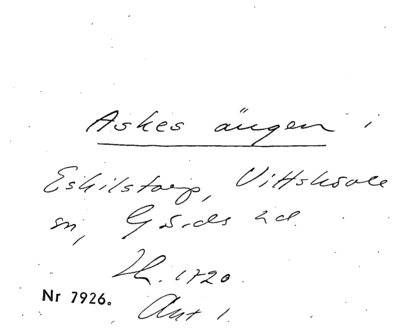 Askes ängen i
Eskilstorp, Vittskövle
sn, Gärds hd.
Lh. 1720.
Nr 7926.
Akt 1.